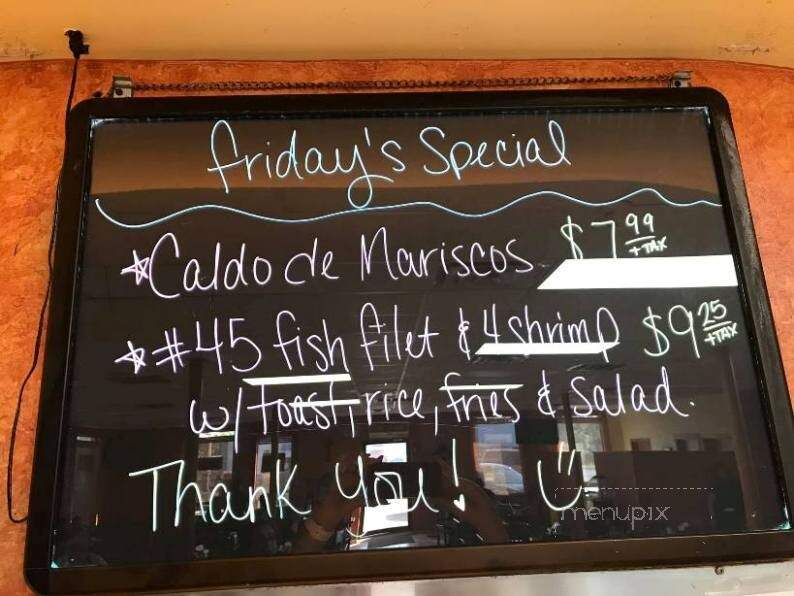 friday's Special
*Caldo de Mariscos $7.99 +TAX
*#45 fish filet & 4 shrimp $9.25 +TAX
w/ toast, rice, fries & salad.
Thank you!
menupix